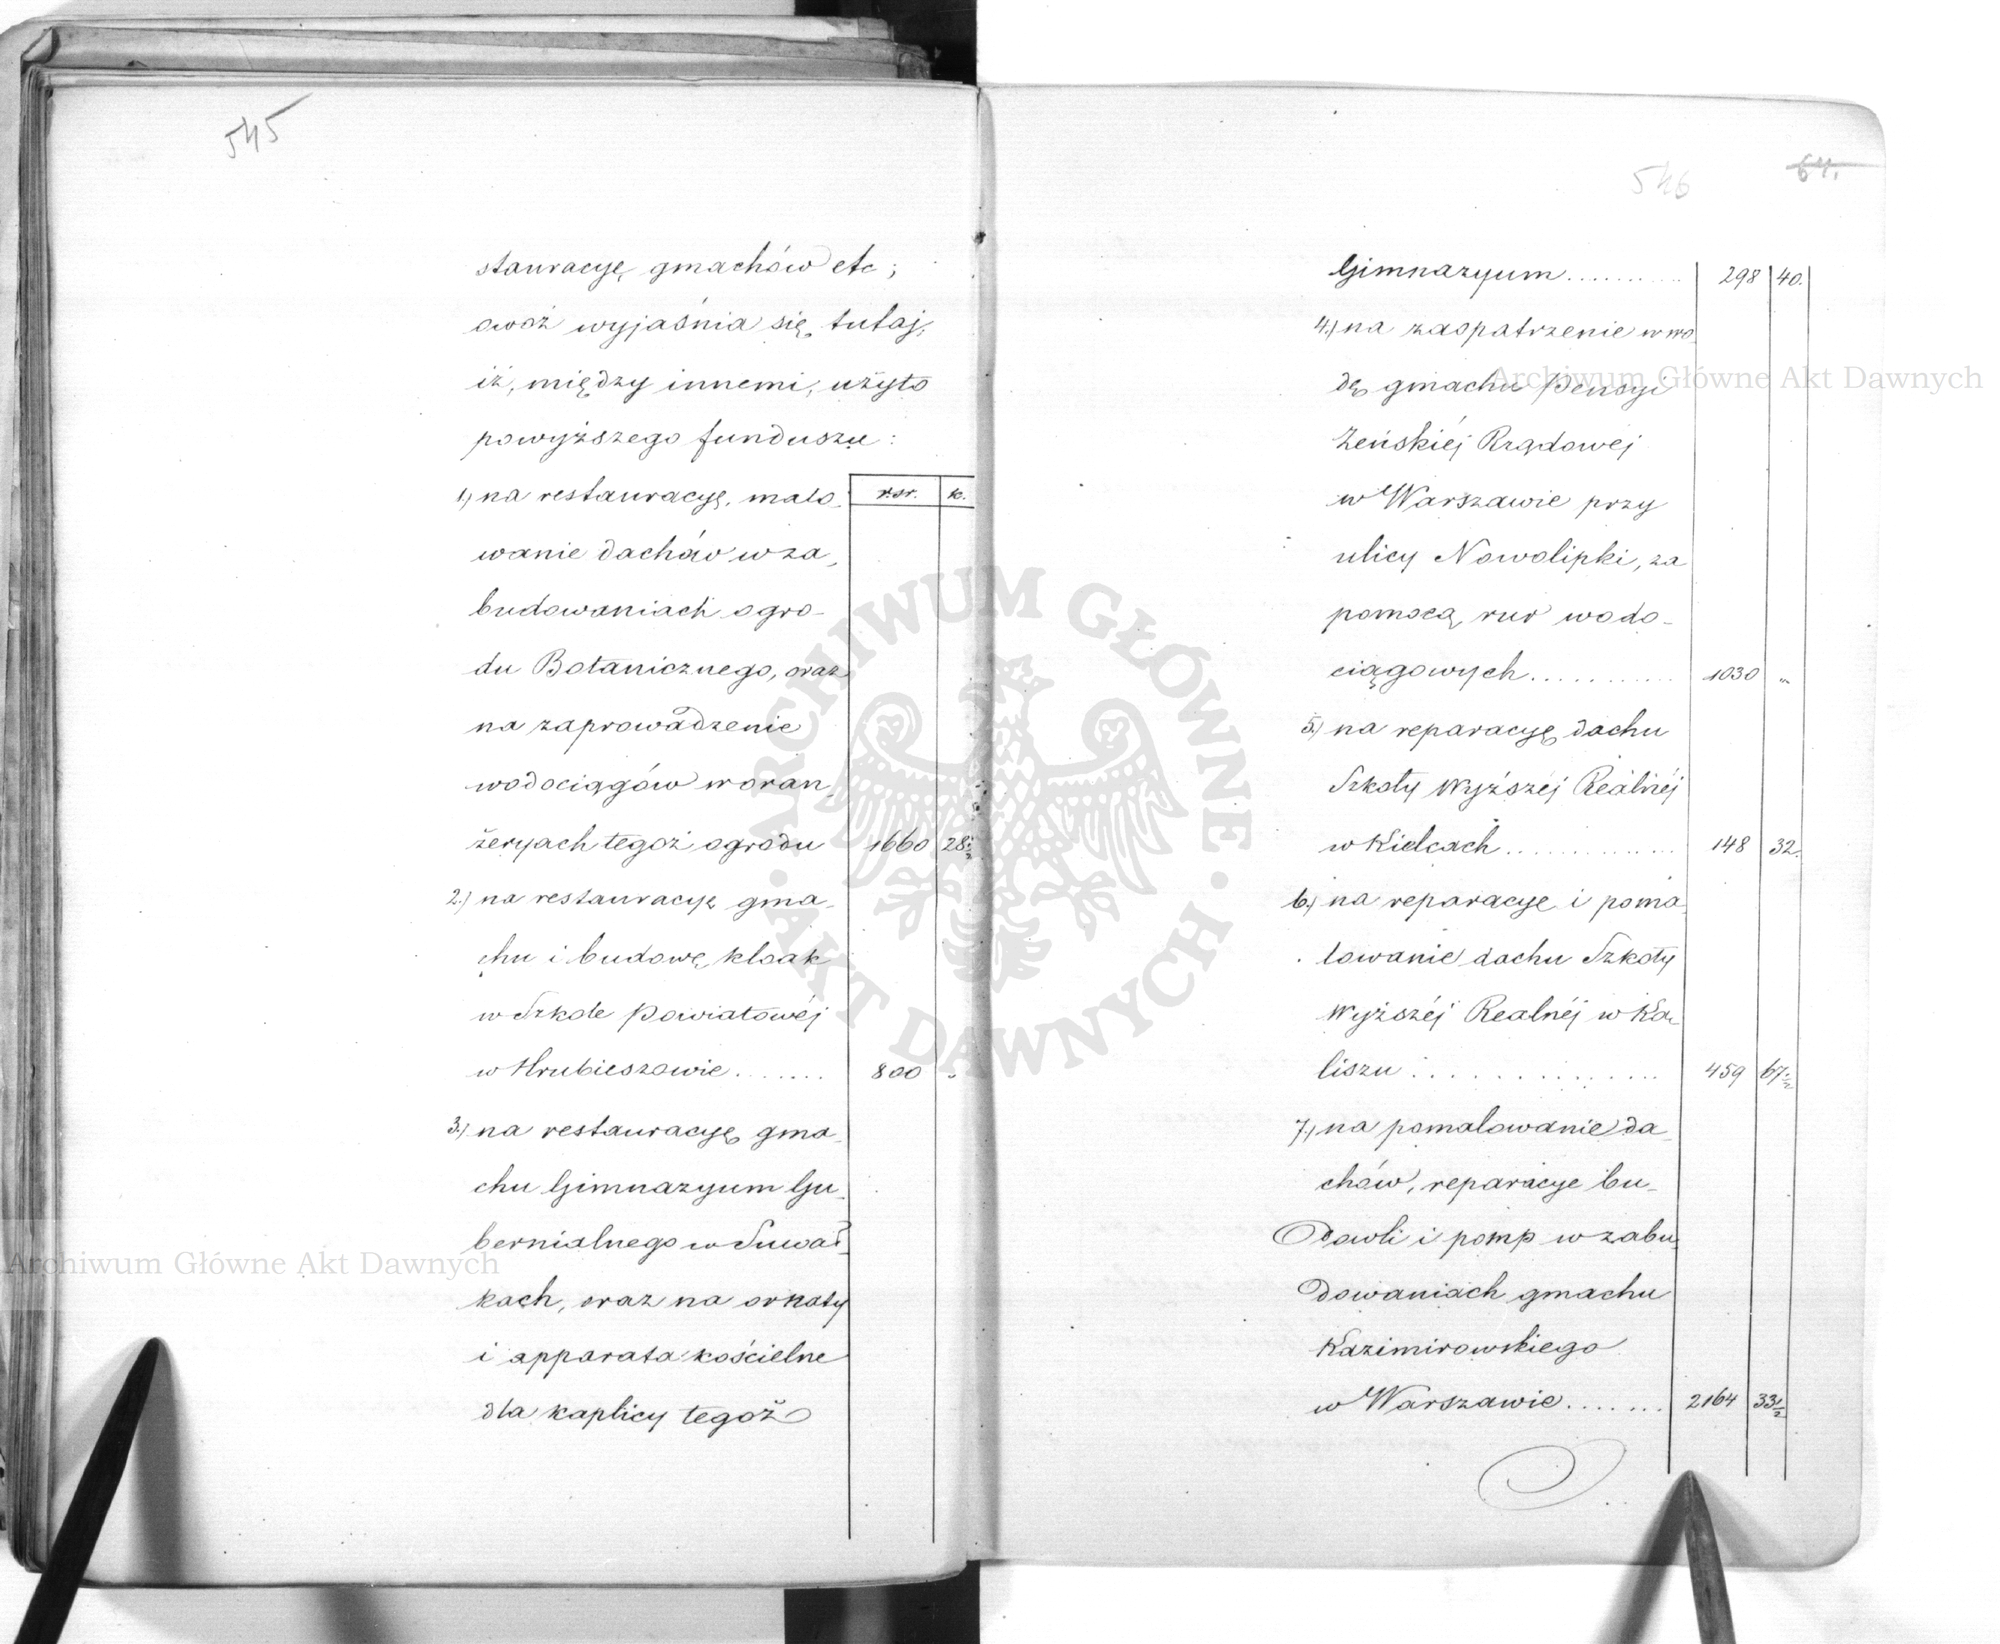 545
stauracyę gmachów etc;
owoż wyjaśnia się tutaj,
iż, między innemi, użyto
powyższego funduszu:
r.sr. k.
1.) na restauracyę, malo-
wanie dachów w za-
budowaniach ogro-
du Botanicznego, oraz
na zaprowadzenie
wodociągów w oran-
żeryach tegoż ogrodu 1660 28 1/2
2.) na restauracyę gma-
chu i budowę kloak
w Szkole Powiatowéj
w Hrubieszowie....... 800 "
3.) na restauracyę gma-
chu Gimnazyum Gu-
bernialnego w Suwał-
kach, oraz na ornaty
i apparata kościelne
dla kaplicy tegoż
546
64.
Gimnazyum.......... 298 40.
4.) na zaopatrzenie w wo-
dę gmachu Pensyi
Żeńskiéj Rządowéj
w Warszawie przy
ulicy Nowolipki, za
pomocą rur wodo-
ciągowych........... 1030 "
5.) na reparacyę dachu
Szkoły Wyższéj Realnéj
w Kielcach............. 148 32.
6.) na reparacye i poma-
lowanie dachu Szkoły
Wyższéj Realnéj w Ka-
liszu............... 459 67 1/2
7.) na pomalowanie da-
chów, reparacye bu-
dowli i pomp w zabu-
dowaniach gmachu
Kazimirowskiego
w Warszawie....... 2164 33 1/2
Archiwum Główne Akt Dawnych
Archiwum Główne Akt Dawnych
ARCHIWUM GŁÓWNE · AKT DAWNYCH ·